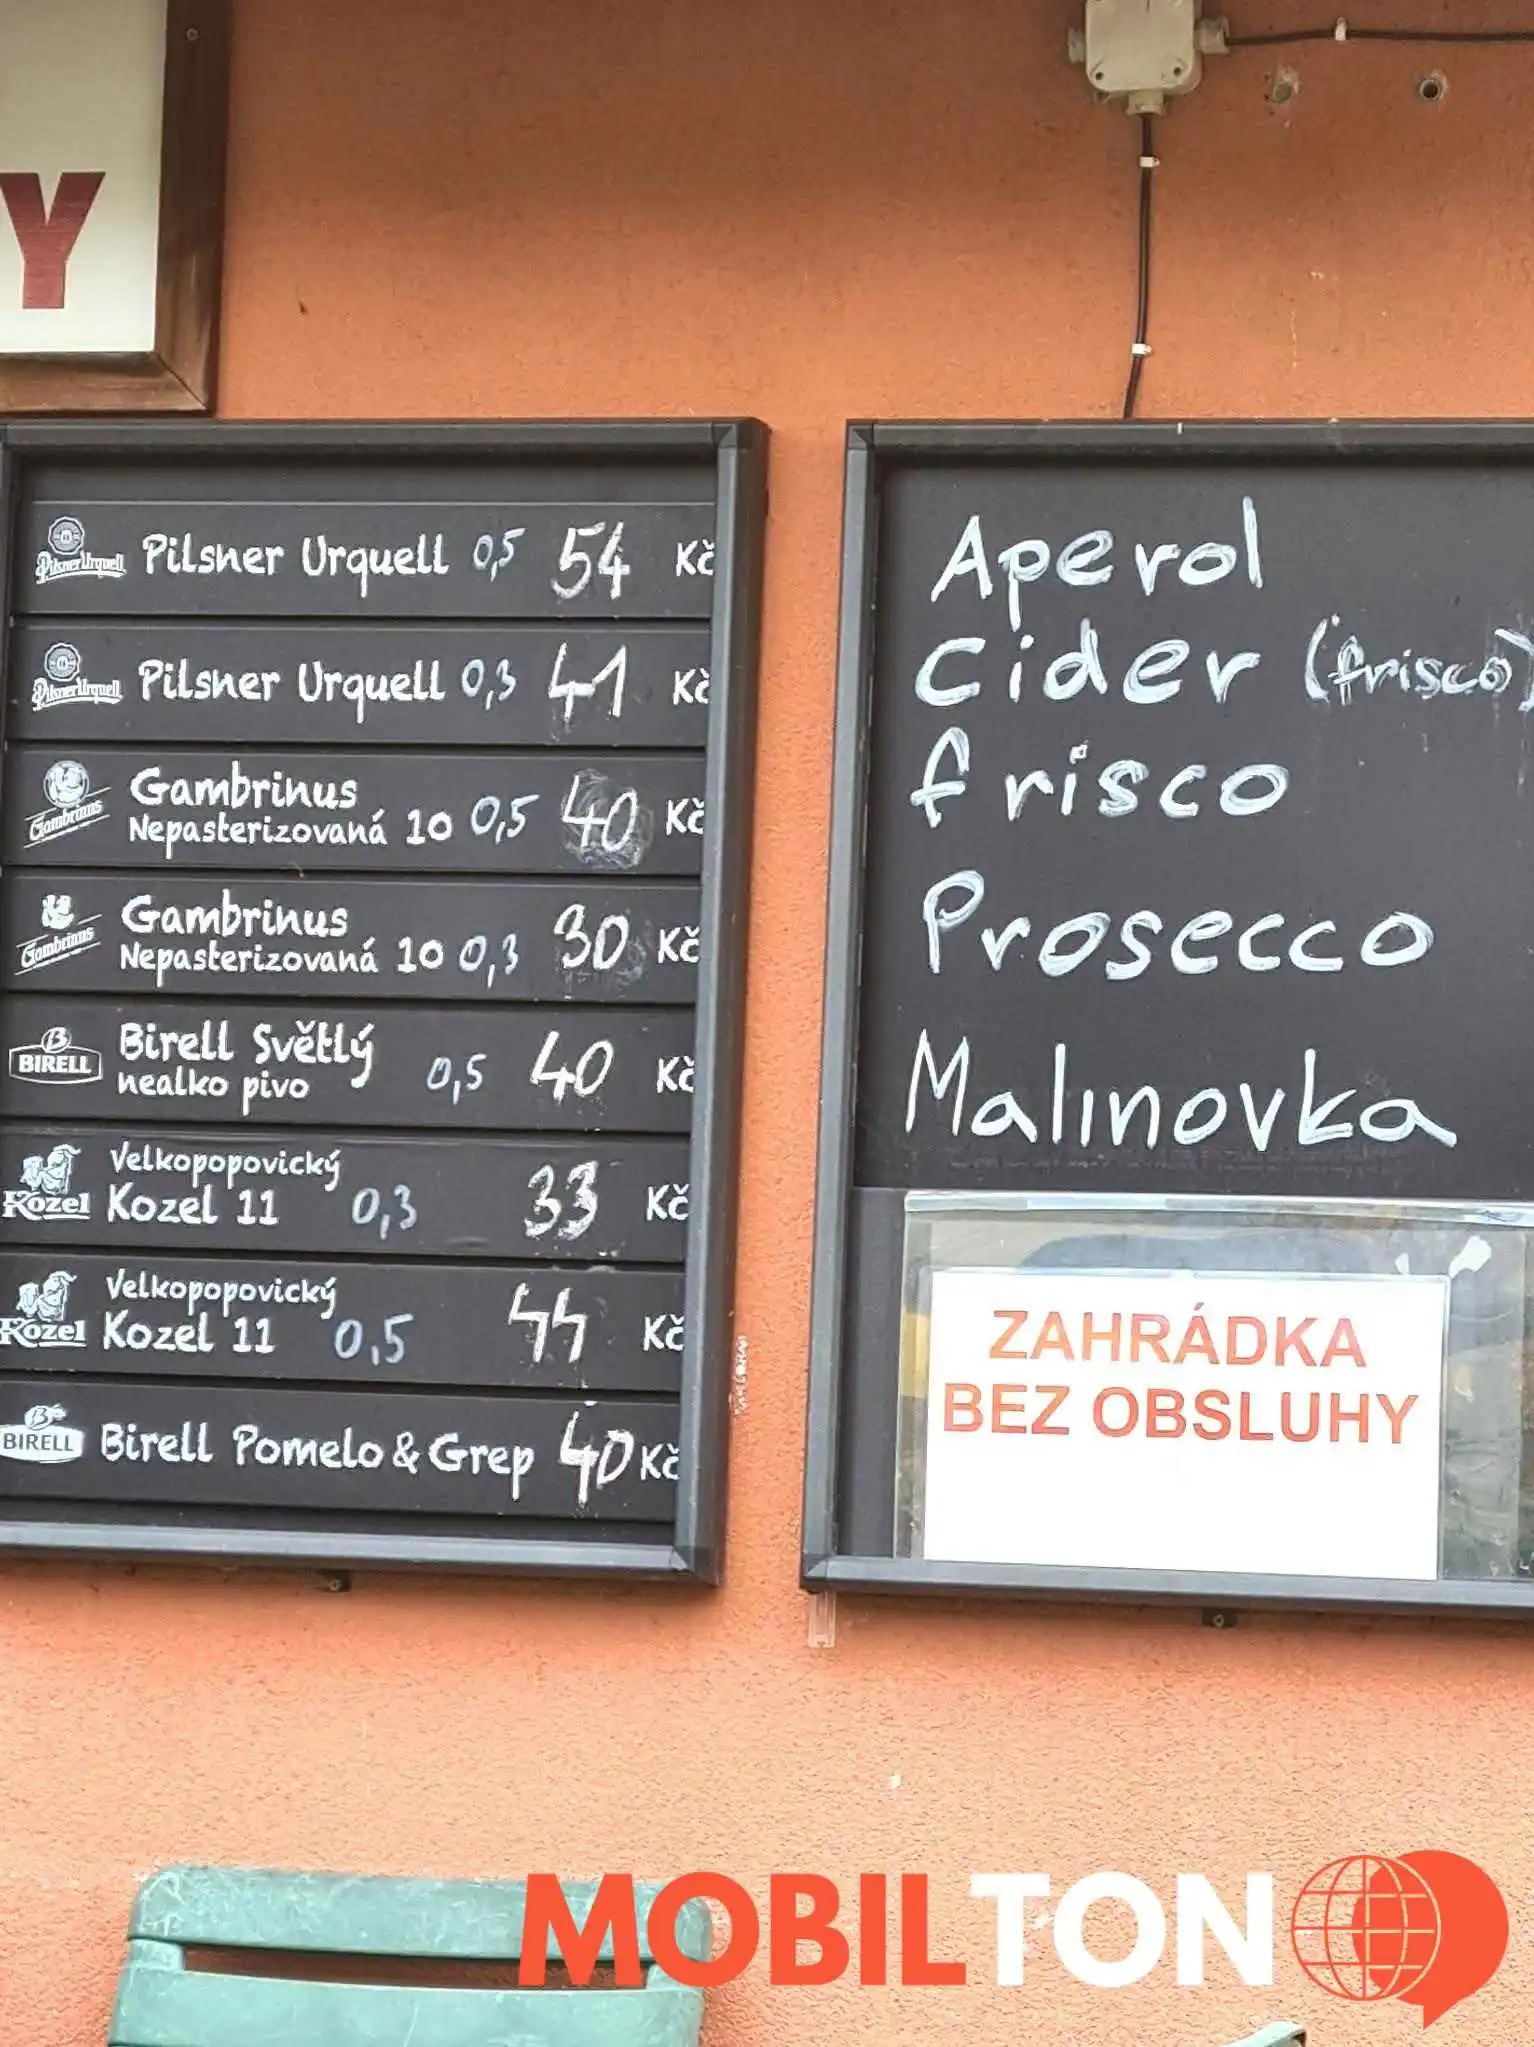 Y
Pilsner Urquell Pilsner Urquell 0,5 54 Kč
Pilsner Urquell Pilsner Urquell 0,3 41 Kč
Gambrinus
Gambrinus Nepasterizovaná 10 0,5 40 Kč
Gambrinus
Gambrinus Nepasterizovaná 10 0,3 30 Kč
B BIRELL Birell Světlý
nealko pivo 0,5 40 Kč
Velkopopovický
Kozel Kozel 11 0,3 33 Kč
Velkopopovický
Kozel Kozel 11 0,5 44 Kč
B BIRELL Birell Pomelo & Grep 40 Kč
Aperol
Cider (frisco)
frisco
Prosecco
Malinovka
ZAHRÁDKA
BEZ OBSLUHY
MOBILTON